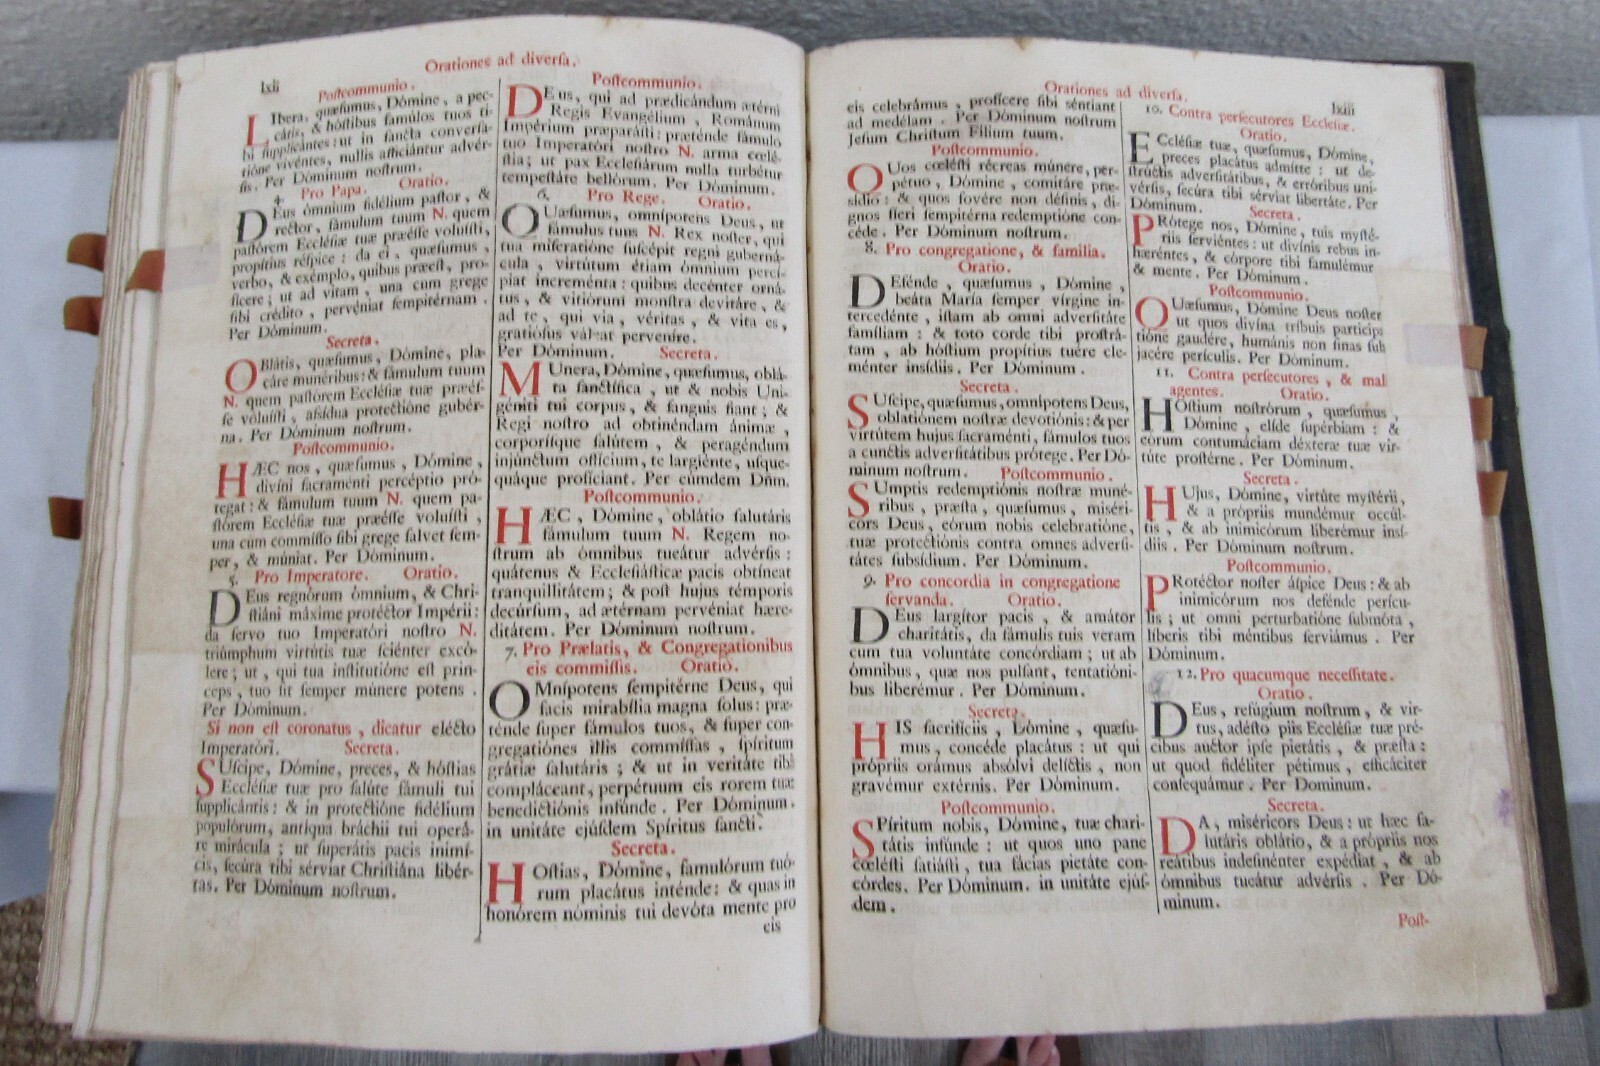 lxii
Orationes ad diverſa.
Poſtcommunio.
LIbera, quæſumus, Dómine, a pec-
cátis, & hóſtibus fámulos tuos ti-
bi ſupplicántes: ut in ſancta converſa-
tióne vivéntes, nullis afficiántur advér-
ſis. Per Dóminum noſtrum.
4. Pro Papa. Oratio.
DEus ómnium fidélium paſtor, &
rector, fámulum tuum N. quem
paſtórem Eccléſiæ tuæ præéſſe voluíſti,
propítius réſpice: da ei, quæſumus,
verbo, & exémplo, quibus præeſt, pro-
ficere; ut ad vitam, una cum grege
ſibi crédito, pervéniat ſempitérnam.
Per Dóminum.
Secreta.
OBlátis, quæſumus, Dómine, pla-
cáre munéribus: & fámulum tuum
N. quem paſtórem Eccléſiæ tuæ præéſ-
ſe voluíſti, aſsídua protectióne gubér-
na. Per Dóminum noſtrum.
Poſtcommunio.
HÆC nos, quæſumus, Dómine,
divíni ſacraménti percéptio pró-
tegat: & fámulum tuum N. quem pa-
ſtórem Eccléſiæ tuæ præéſſe voluíſti,
una cum commíſſo ſibi grege ſalvet ſem-
per, & múniat. Per Dóminum.
5. Pro Imperatore. Oratio.
DEus regnórum ómnium, & Chri-
ſtiáni máxime protéctor Impérii:
da ſervo tuo Imperatóri noſtro N.
triúmphum virtútis tuæ ſciénter excó-
lere; ut, qui tua inſtitutióne eſt prin-
ceps, tuo ſit ſemper múnere potens.
Per Dóminum.
Si non eſt coronatus, dicatur elécto
Imperatóri. Secreta.
SUſcipe, Dómine, preces, & hóſtias
Eccléſiæ tuæ pro ſalúte fámuli tui
ſupplicántis: & in protectióne fidélium
populórum, antíqua bráchii tui operá-
re mirácula; ut ſuperátis pacis inimí-
cis, ſecúra tibi sérviat Chriſtiána libér-
tas. Per Dóminum noſtrum.
Poſtcommunio.
DEus, qui ad prædicándum ætérni
Regis Evangélium, Románum
Impérium præparáſti: præténde fámulo
tuo Imperatóri noſtro N. arma cœlé-
ſtia; ut pax Eccleſiárum nulla turbétur
tempeſtáte bellórum. Per Dóminum.
6. Pro Rege. Oratio.
QUæſumus, omnípotens Deus, ut
fámulus tuus N. Rex noſter, qui
tua miſeratióne ſuſcépit regni guberná-
cula, virtútum étiam ómnium percí-
piat increménta: quibus decénter orná-
tus, & vitiórum monſtra devitáre, &
ad te, qui via, véritas, & vita es,
gratióſus váleat perveníre.
Per Dóminum. Secreta.
MUnera, Dómine, quæſumus, oblá-
ta ſanctífica, ut & nobis Uni-
géniti tui corpus, & ſanguis fiant; &
Regi noſtro ad obtinéndam ánimæ,
corporíſque ſalútem, & peragéndum
injúnctum offícium, te largiénte, uſque-
quáque profíciant. Per eúmdem Dñm.
Poſtcommunio.
HÆC, Dómine, oblátio ſalutáris
fámulum tuum N. Regem no-
ſtrum ab ómnibus tueátur advérſis:
quátenus & Eccleſiáſticæ pacis obtíneat
tranquillitátem; & poſt hujus témporis
decúrſum, ad ætérnam pervéniat hære-
ditátem. Per Dóminum noſtrum.
7. Pro Prælatis, & Congregationibus
eis commiſſis. Oratio.
OMnípotens ſempitérne Deus, qui
facis mirabília magna ſolus: præ-
ténde ſuper fámulos tuos, & ſuper con-
gregatiónes illis commíſſas, ſpíritum
grátiæ ſalutáris; & ut in veritáte tibi
compláceant, perpétuum eis rorem tuæ
benedictiónis infúnde. Per Dóminum.
in unitáte ejúſdem Spíritus ſancti.
Secreta.
HOſtias, Dómine, famulórum tuó-
rum placátus inténde: & quas in
honórem nóminis tui devóta mente pro
eis
Orationes ad diverſa.
lxiii
eis celebrámus, profícere ſibi séntiant
ad medélam. Per Dóminum noſtrum
Jeſum Chriſtum Filium tuum.
Poſtcommunio.
QUos cœléſti récreas múnere, per-
pétuo, Dómine, comitáre præ-
sídio: & quos fovére non déſinis, di-
gnos fíeri ſempitérna redemptióne con-
céde. Per Dóminum noſtrum.
8. Pro congregatione, & familia.
Oratio.
DEfénde, quæſumus, Dómine,
beáta María ſemper vírgine in-
tercedénte, iſtam ab omni adverſitáte
famíliam: & toto corde tibi proſtrá-
tam, ab hóſtium propítius tuére cle-
ménter insídiis. Per Dóminum.
Secreta.
SUſcipe, quæſumus, omnípotens Deus,
oblatiónem noſtræ devotiónis: & per
virtútem hujus ſacraménti, fámulos tuos
a cunctis adverſitátibus prótege. Per Dó-
minum noſtrum. Poſtcommunio.
SUmptis redemptiónis noſtræ muné-
ribus, præſta, quæſumus, miséri-
cors Deus, eórum nobis celebratióne,
tuæ protectiónis contra omnes adverſi-
tátes ſubsídium. Per Dóminum.
9. Pro concordia in congregatione
ſervanda. Oratio.
DEus largítor pacis, & amátor
charitátis, da fámulis tuis veram
cum tua voluntáte concórdiam; ut ab
ómnibus, quæ nos pulſant, tentatióni-
bus liberémur. Per Dóminum.
Secreta.
HIS ſacrifíciis, Dómine, quæſu-
mus, concéde placátus: ut qui
própriis orámus abſólvi delíctis, non
gravémur extérnis. Per Dóminum.
Poſtcommunio.
SPíritum nobis, Dómine, tuæ chari-
tátis infúnde: ut quos uno pane
cœléſti ſatiáſti, tua fácias pietáte con-
córdes. Per Dóminum. in unitáte ejúſ-
dem.
10. Contra perſecutores Eccleſiæ.
Oratio.
ECcléſiæ tuæ, quæſumus, Dómine,
preces placátus admítte: ut de-
ſtrúctis adverſitátibus, & erróribus uni-
vérſis, ſecúra tibi sérviat libertáte. Per
Dóminum. Secreta.
PRótege nos, Dómine, tuis myſté-
riis ſerviéntes: ut divínis rebus in-
hæréntes, & córpore tibi famulémur
& mente. Per Dóminum.
Poſtcommunio.
QUæſumus, Dómine Deus noſter
ut quos divína tríbuis particip
tióne gaudére, humánis non ſinas ſub
jacére perículis. Per Dóminum.
11. Contra perſecutores, & mal
agentes. Oratio.
HOſtium noſtrórum, quæſumus,
Dómine, elíde ſupérbiam: &
eórum contumáciam déxteræ tuæ vir-
túte proſtérne. Per Dóminum.
Secreta.
HUjus, Dómine, virtúte myſtérii,
& a própriis mundémur occúl-
tis, & ab inimicórum liberémur insí-
diis. Per Dóminum noſtrum.
Poſtcommunio.
PRotéctor noſter áſpice Deus: & ab
inimicórum nos defénde perícu-
lis; ut omni perturbatióne ſubmóta,
líberis tibi méntibus ſerviámus. Per
Dóminum.
12. Pro quacumque neceſſitate.
Oratio.
DEus, refúgium noſtrum, & vir-
tus, adéſto piis Eccléſiæ tuæ pré-
cibus auctor ipſe pietátis, & præſta:
ut quod fidéliter pétimus, efficáciter
conſequámur. Per Dominum.
Secreta.
DA, miséricors Deus: ut hæc ſa-
lutáris oblátio, & a própriis nos
reátibus indeſinénter expédiat, & ab
ómnibus tueátur advérſis. Per Dó-
minum.
Poſt-